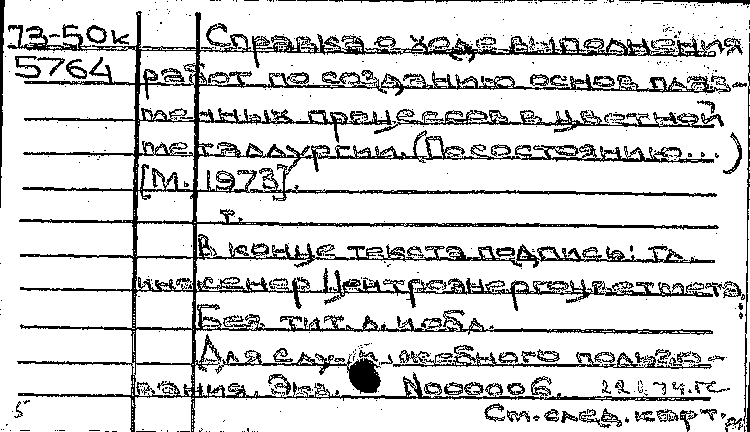 73-50к Справка о ходе выполнения
5764 работ по созданию основ плаз-
менных процессов в цветной
металлургии. (По состоянию...)
[М., 1973].
т.
В конце текста подпись: Гл.
инженер Центроэнергоцветмета.
Без тит. л. и обл.
Для служебного пользо-
вания. Экз. N000006. 22.1.74.гс
5 См. след. карт.